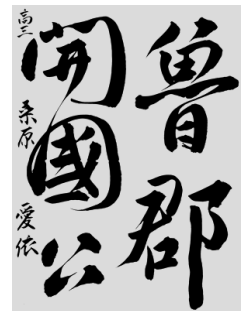 魯郡
開國公
高三 桑原 愛依